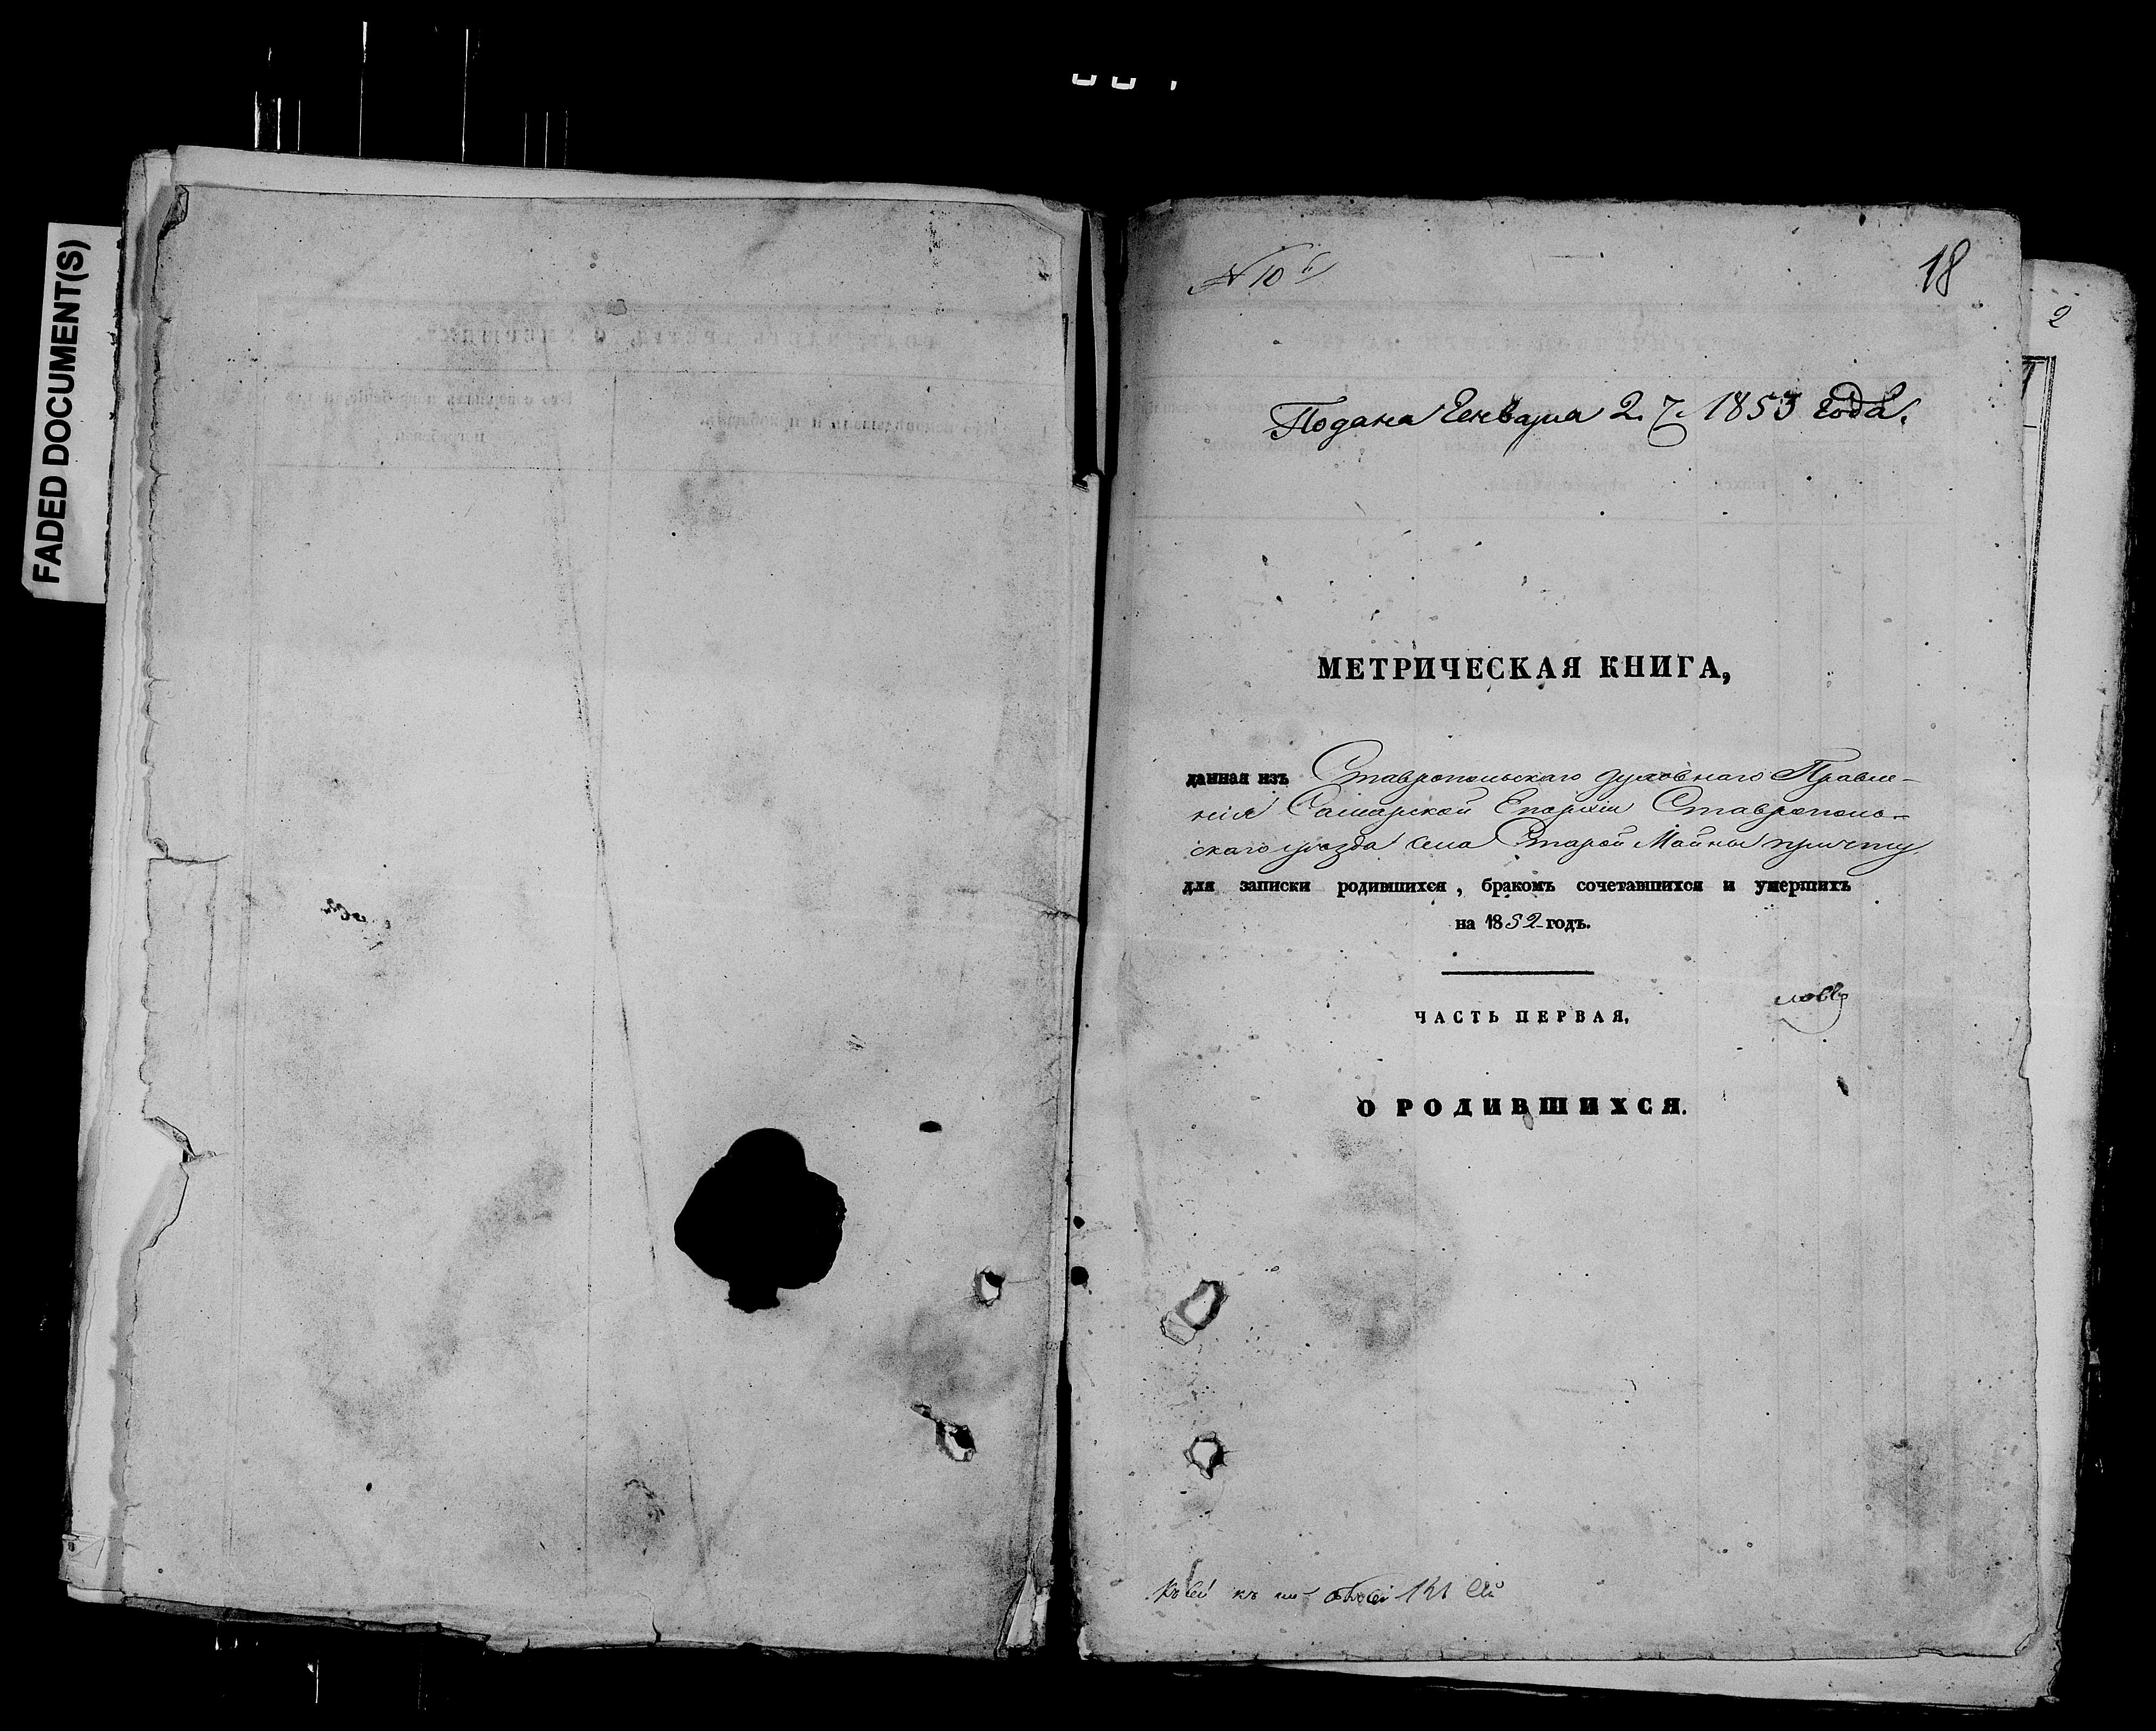 FADED DOCUMENT(S)
№ 10й
18
2
Подана Генваря 27. 1853 года.
МЕТРИЧЕСКАЯ КНИГА,
данная изъ Ставропольскаго духовнаго Правле-
нія Самарской Епархіи Ставрополь-
скаго уѣзда села Старой Майны причту
для записки родившихся, бракомъ сочетавшихся и умершихъ
на 1852 годъ.
ЧАСТЬ ПЕРВАЯ,
О РОДИВШИХСЯ.